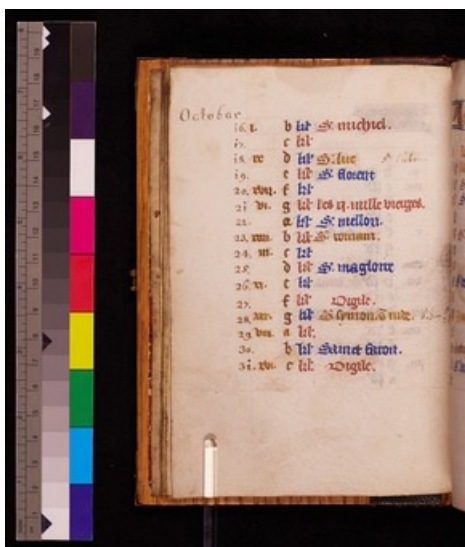 October
16. b kl' S. michiel.
17. c kl'
18. d kl' S. luc
19. e kl' S. florent
20. xvii. f kl'
21 vi. g kl' les xi. mille vierges.
22. a kl' S. mellon.
23. b kl' S. romain.
24. iii. c kl'
25. d kl' S. magloire
26. xi. e kl'
27. f kl' Vigile.
28. xix. g kl' S. symon
29 viii a kl'.
30. b kl' Sainct
31. xvi. c kl' Vigile.